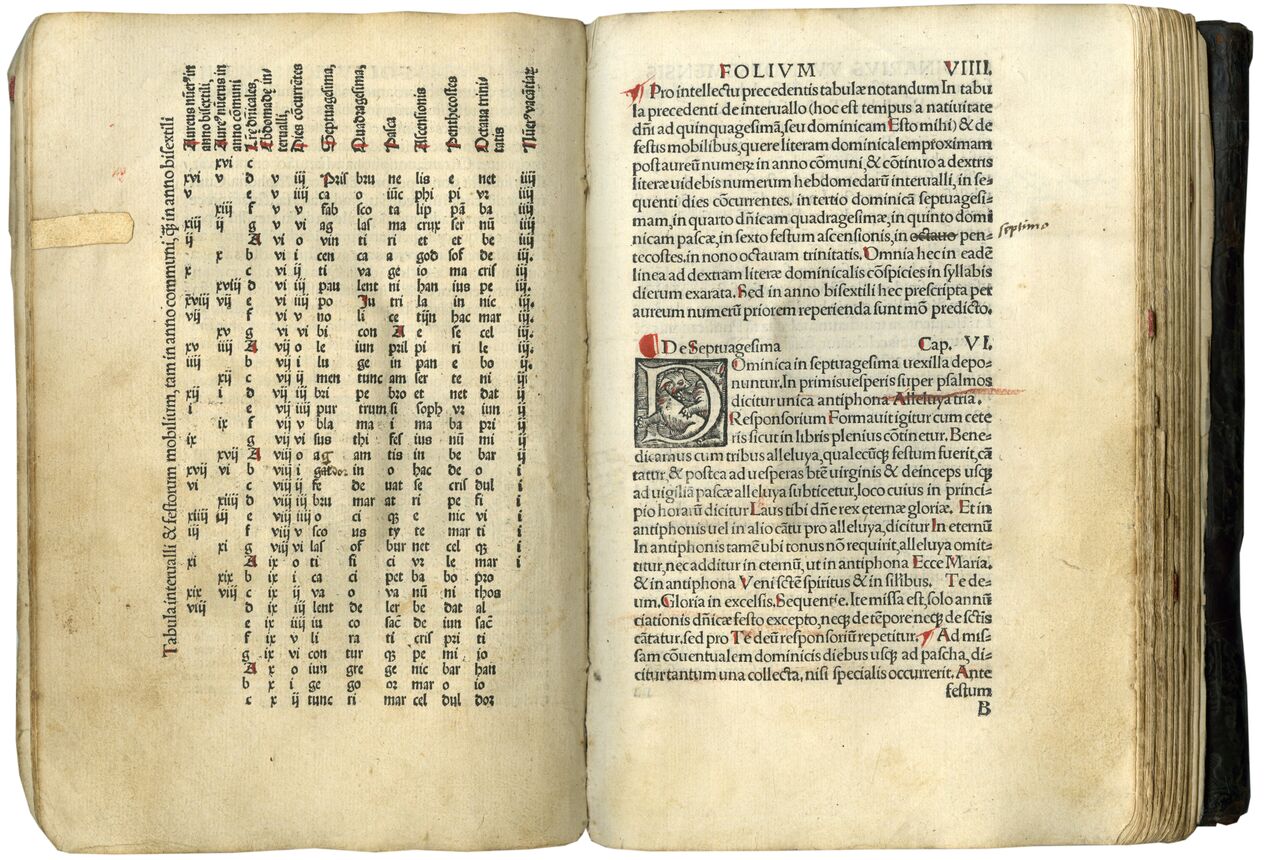 Tabula interualli & festorum mobilium, tam in anno communi, ꝙ̃ in anno bisextili
Aureus nũerꝰ in anno bisextili,
Aureꝰ nũerus in anno cõmuni
Lr̃ę dñicales,
Abdomadę interualli,
Dies cõcurrẽtes
Septuagesima,
Quadragesima,
Pasca
Ascensionis
Penthecostes
Octaua trinitatis
Nũerꝰ vacãtiaꝝ
xvi c
xvi v d v iij Pris bru ne lis e net iiij
v e v iiij ca o iũc phi pi vr iiij
xiij f v v fab sco ta lip pã ba iiij
xiij ij g v vi ag las ma crux ser nũ iiij
ij A vi o vin ti ri et et be iiij
x b vi i cen ca a god sof de iij
x c vi ij ti va ge io ma cris iij
xviij d vi iij pau lent ni han ius pe iij
xviij vij e vi iiij po Ju tri la in nic iij.
vij f vi v no li ce tijn hac mar iij.
xv g vi vi bi con A e se cel iij.
xv iiij A vij o le iun pril pi ri le iij.
iiij b vij i lu ge in pan e bo ij
xij c vij ij men tunc am ser te ni ij
xij i d vij iij bri pe bro et net dat ij
i e vij iiij pur trum si soph vr iun ij
ix f vij v bla ma i ma ba pri ij
ix g vij vi sus thi fes ius nũ mi ij
xvij A viij o ag am tis in be bar ij
xvij vi b viij i gat dor in o hac de o i
vi c viij ij fe de uat se cris dul i
xiiij d viij iij bru mar at ri pe fi i
xiiij iij e viij iiij o ci qȝ e nic vi i
iij f viij v sco us ty te mar ti i
xi g viij vi las of bur net cel qȝ i
xi A ix o ti si ci vr le mar i
xix b ix i ca ci pet ba bo pro
xix viij c ix ij va o va nũ ni thos
viij d ix iij lent de ler be dat al
e ix iiij iu co sac̃ de iun sac̃
f ix v li ra ti cris pri ti
g ix vi con tur qȝ pe mi io
A x o iun gre ge nic bar han
b x i ge go or mar o io
c x ij tunc ri mar cel dul dor
FOLIVM VIIII.
Pro intellectu precedentis tabulæ notandum In tabu
la precedenti de interuallo (hoc est tempus a natiuitate
dñi ad quinquagesimã, seu dominicam Esto mihi) & de
festis mobilibus, quere literam dominicalem proximam
post aureum numerꝝ in anno cõmuni, & cõtinuo a dextris
literæ uidebis numerum hebdomedarũ interualli, in se-
quenti dies cõcurrentes. in tertio dominicã septuagesi-
mam, in quarto dñicam quadragesimæ, in quinto domi
nicam pascæ, in sexto festum ascensionis, in octauo pen-
septimo
tecostes. in nono octauam trinitatis. Omnia hec in eadẽ
linea ad dextram literæ dominicalis cõspicies in syllabis
dierum exarata. Sed in anno bisextili hec prescripta per
aureum numerũ priorem reperienda sunt mõ predicto.
De Septuagesima Cap. VI.
DOminica in septuagesima uexilla depo-
nuntur. In primis uesperis super psalmos
dicitur unica antiphona Alleluya tria.
Responsorium Formauit igitur cum cete
ris sicut in libris plenius cõtinetur. Bene-
dicamus cum tribus alleluya, qualecũqȝ festum fuerit, cã
tatur, & postca ad uesperas btẽ uirginis & deinceps usqȝ
ad uigiliã pascæ alleluya subticetur, loco cuius in princi-
pio horarũ dicitur Laus tibi dñe rex eternæ gloriæ. Et in
antiphonis uel in alio cãtu pro alleluya, dicitur In eternũ
In antiphonis tamẽ ubi tonus nõ requirit, alleluya omit-
titur, nec additur in eternũ, ut in antiphona Ecce Maria.
& in antiphona Veni sctẽ spiritus & in silibus. Te de-
um. Gloria in excelsis. Sequentie. Ite missa est, solo annũ
ciationis dñicæ festo excepto, neqȝ de tẽpore neqȝ de sctĩs
cãtatur. sed pro Te deũ responsoriũ repetitur. Ad mis-
sam cõuentualem dominicis diebus usqȝ ad pascha, di-
citur tantum una collecta, nisi specialis occurrerit. Ante
festum
B